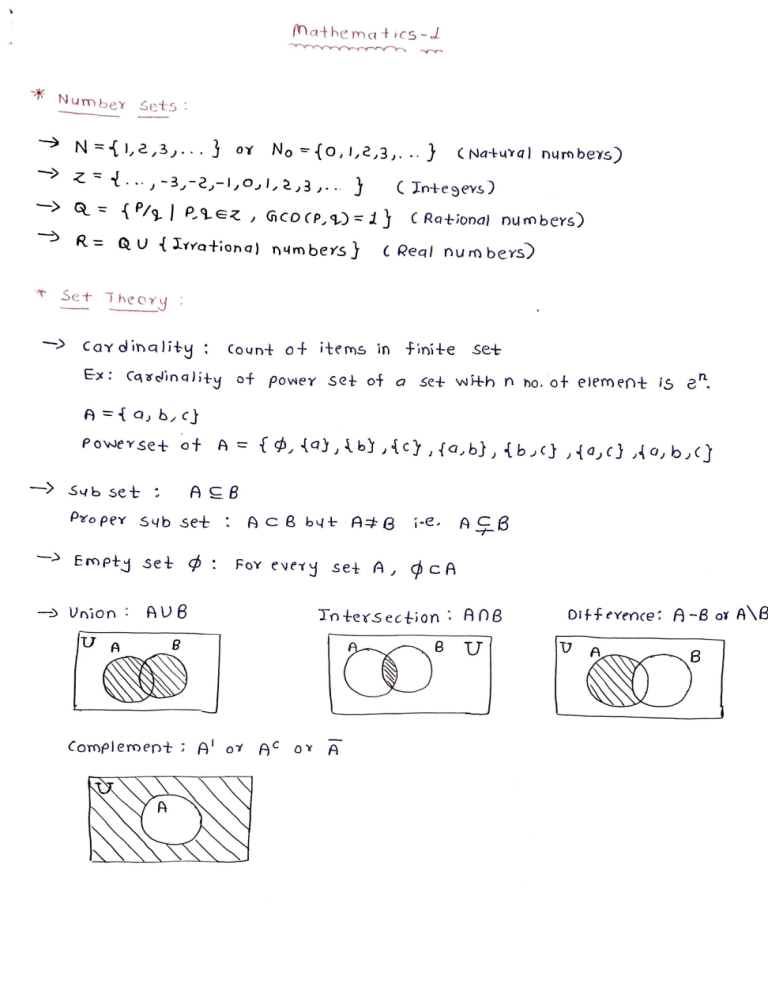 Mathematics-1
* Number sets:
→ N = {1,2,3,... } or No = {0,1,2,3,... } (Natural numbers)
→ Z = {..., -3,-2,-1,0,1,2,3,... } (Integers)
→ Q = {P/q | P,q ∈ Z , GCD(P,q) = 1} (Rational numbers)
→ R = Q U {Irrational numbers} (Real numbers)
* Set Theory :
→ Cardinality : Count of items in finite set
Ex: Cardinality of power set of a set with n no. of element is 2ⁿ.
A = {a, b, c}
Powerset of A = { ϕ, {a}, {b}, {c}, {a,b}, {b,c}, {a,c}, {a,b,c}
→ Sub set : A ⊆ B
Proper sub set : A ⊂ B but A ≠ B i.e. A ⊊ B
→ Empty set ϕ : For every set A, ϕ ⊂ A
→ Union : A∪B Intersection : A∩B Difference: A-B or A\B
U A B A B U U A B
Complement : A' or Aᶜ or A̅
U
A